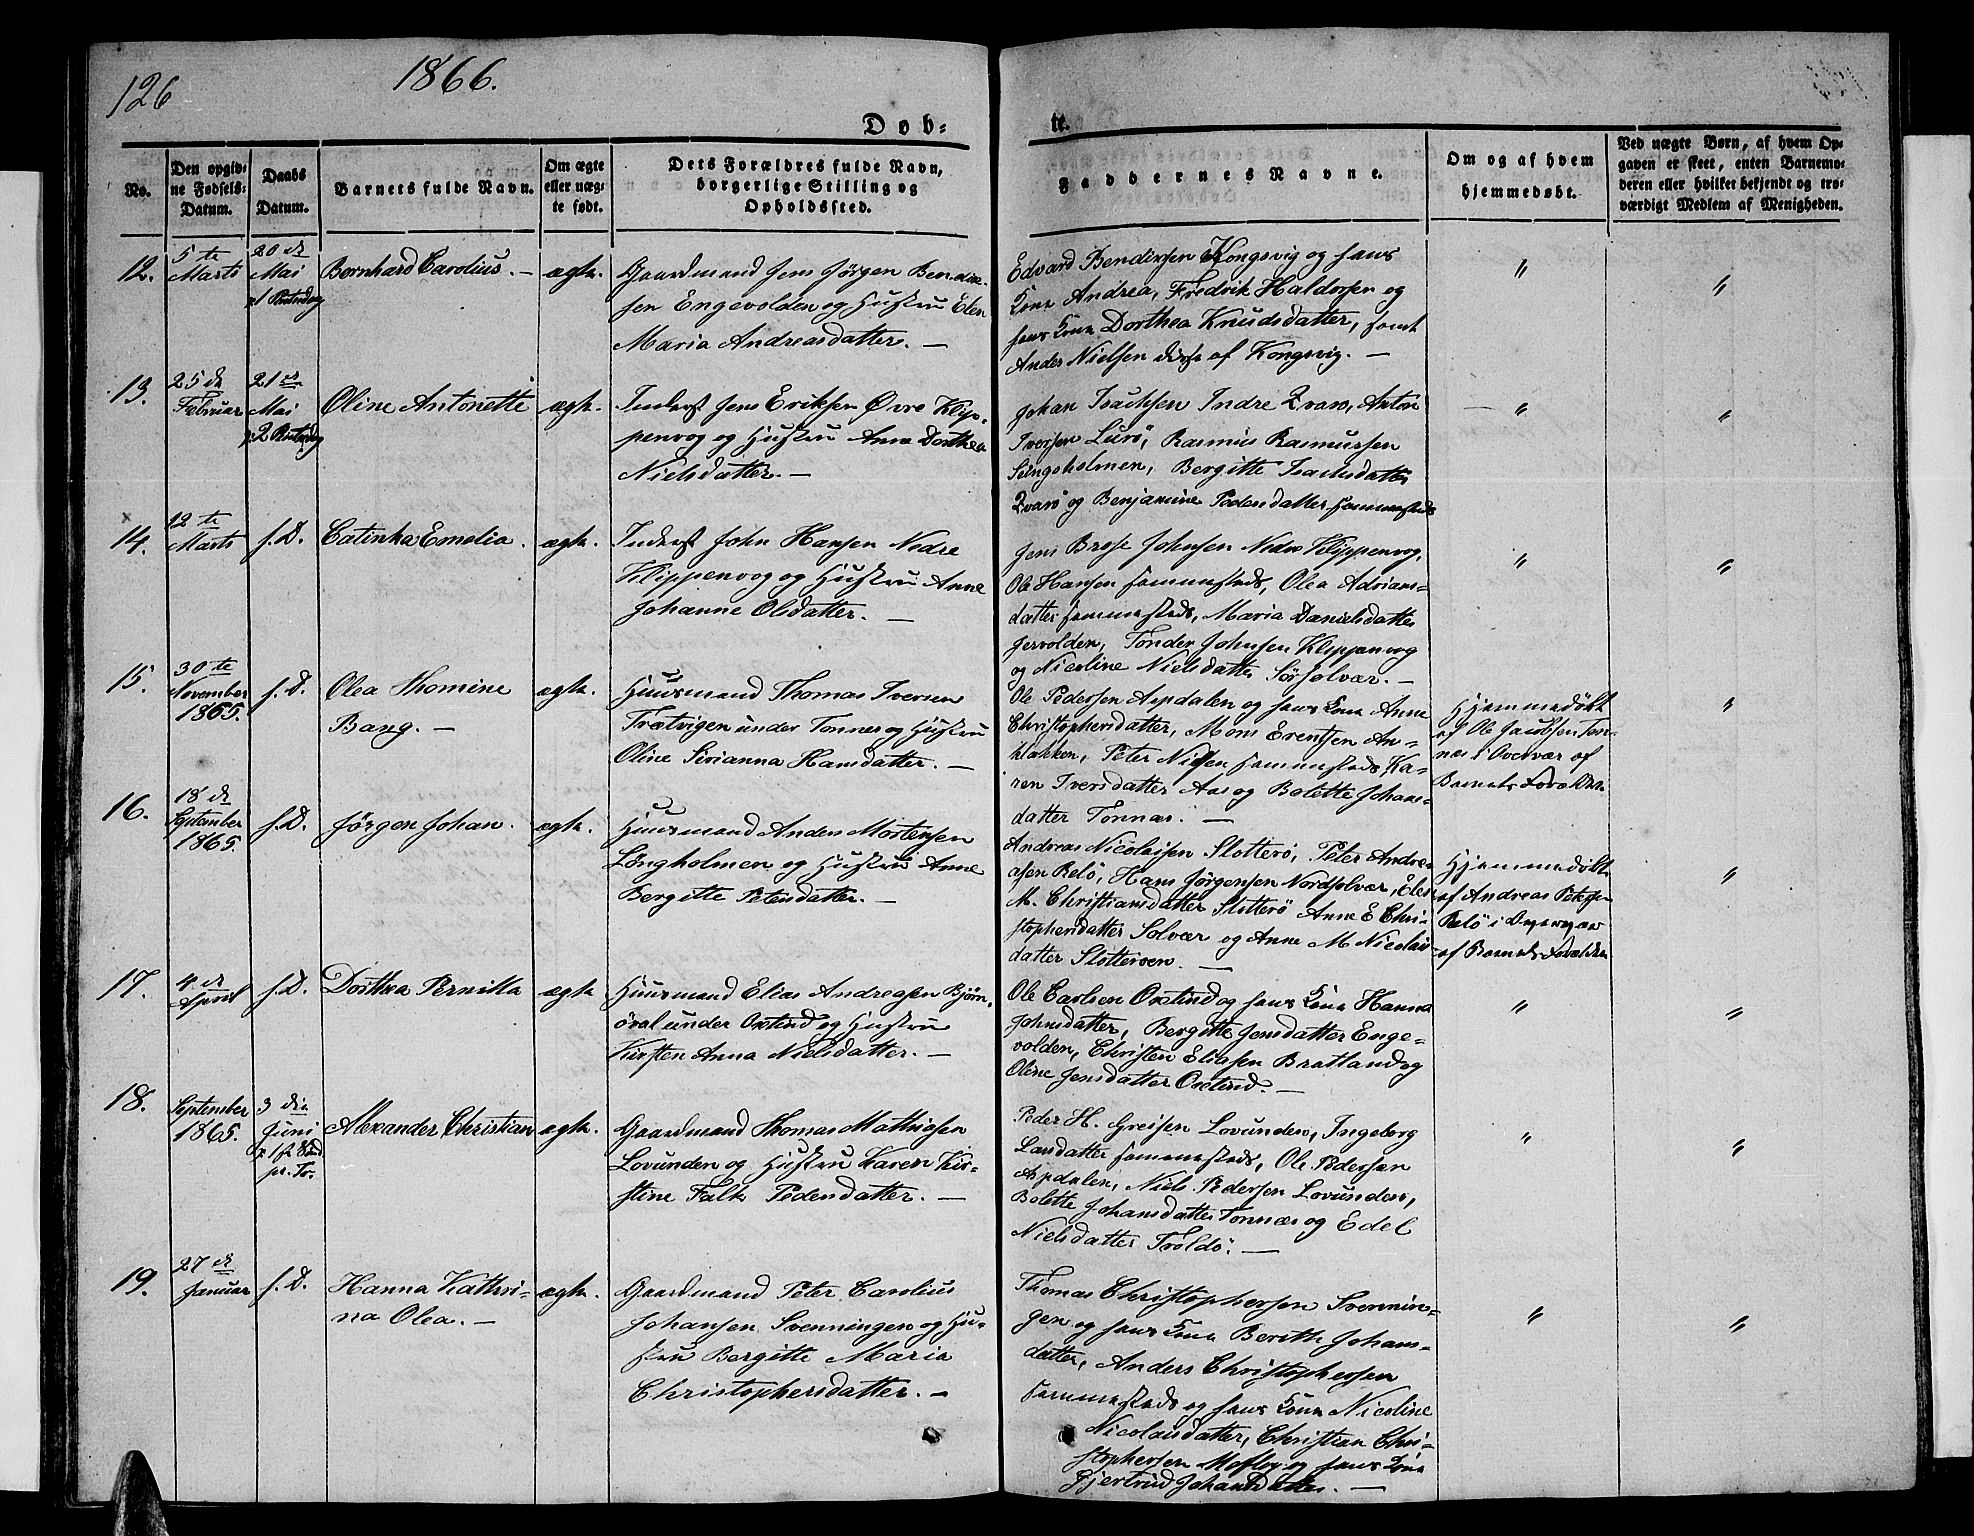 126
1866.
Døb-
te.
No.
Den opgiv-
ne Fødsels-
Datum.
Daabs
Datum.
Barnets fulde Navn.
Om ægte
eller uæg-
te født.
Dets Forældres fulde Navn,
borgerlige Stilling og
Opholdssted.
Faddernes Navne.
Om og af hvem
hjemmedøbt.
Ved uægte Børn, af hvem Op-
gaven er skeet, enten Barnemo-
deren eller hvilket bekjendt og tro-
værdigt Medlem af Menigheden.
12.
5te
Marts
20de
Mai
Bernhard Carolius. —
ægte.
Gaardmand Jens Jørgen Bendix-
sen Engevolden og Hustru Elen
Maria Andreasdatter. —
Edvard Bendixsen Kongsvig og hans
Kone Andrea, Fredrik Haldorsen og
hans Kone Dorthea Knudsdatter, samt
Anders Nielsen disse af Kongsvig. —
"
"
13.
25de
Februar
21de
Mai
Oline Antonette
ægte.
Inderst Jens Eriksen Øvre Klip-
penvog og Hustru Anne Dorthea
Nielsdatter. —
Johan Isachsen Indre Qvarø, Anton
Iversen Lurö, Rasmus Rasmussen
Singsholmen, Bergitte Isachsdatter
Qvarø og Benjamine Pedersdatter sammesteds
"
"
14.
12te
Marts
s. D.
Catinka Emelia.
ægte.
Inderst John Hansen Nedre
Klippenvog og Hustru Anne
Johanne Olsdatter. —
Jens Brose Johnsen Nedre Klippenvog,
Ole Hansen sammesteds, Olea Adrians-
datter sammesteds, Maria Danielsdatter
Jersvolden, Tönder Johnsen Klippenvog
og Nicoline Nielsdatter Sörsolvær. —
"
"
15.
30te
November
1865.
s. D.
Olea Thomine
Bang. —
ægte.
Huusmand Thomas Iversen
Trætvigen under Tonnes og Hustru
Oline Sivianna Hansdatter. —
Ole Pedersen Aspdalen og hans Kone Anne
Christophersdatter, Mons Erentsen An-
klakken, Peter Nilsen sammesteds, Ka-
ren Iversdatter Aas og Bolette Johans-
datter Tonnes. —
Hjemmedøbt
af Ole Jacobsen Ton-
nes i Overvær af
Barnets Forældre
"
16.
18de
September
1865.
s. D.
Jørgen Johan.
ægte.
Huusmand Anders Mortensen
Longholmen og Hustru Anne
Bergitte Petersdatter. —
Andreas Nicolaisen Slotterö, Peter Andre-
asen Relö, Hans Jørgensen Nordsolvær, Elen
M. Christiansdatter Slotterö Anne E Chri-
stophersdatter Solvær og Anne M Nicolai-
datter Slotteroen. —
Hjemmedøbt
af Andreas Petersen
Relö i Overvær
af Barnets Forældre
"
17.
4de
April
s. D.
Dorthea Pernilla
ægte
Huusmand Elias Andreasen Bjørn-
øval under Oxtind og Hustru
Kirsten Anna Nielsdatter. —
Ole Carlsen Oxtind og hans Kone Hanna
Johnsdatter, Bergitte Jensdatter Enge-
volden, Christen Eliasen Bratland og
Oline Jensdatter Oxtind. —
"
"
18.
September
1865.
3die
Juni
Alexander Christian
ægte.
Gaardmand Thomas Mathiasen
Lovunden og Hustru Karen Kir-
stine Falk Pedersdatter. —
Peder H. Greisen Lovunden, Ingeborg
Larsdatter sammesteds, Ole Pedersen
Aspdalen, Niels Pedersen Lovunden,
Bolette Johansdatter Tonnes og Edel
Nielsdatter Troldö. —
"
"
19.
27de
Januar
s. D.
Hanna Kathri-
na Olea. —
ægte.
Gaardmand Peter Carolius
Johansen Svenningen og Hu-
stru Bergitte Maria
Christophersdatter. —
Thomas Christophersen Svennin-
gen og hans Kone Berith Johans-
datter, Anders Christophersen
sammesteds og hans Kone Nicoline
Nicolaisdatter, Christian Chri-
stophersen Mosby og hans Kone
Gjertrud Johansdatter. —
"
"